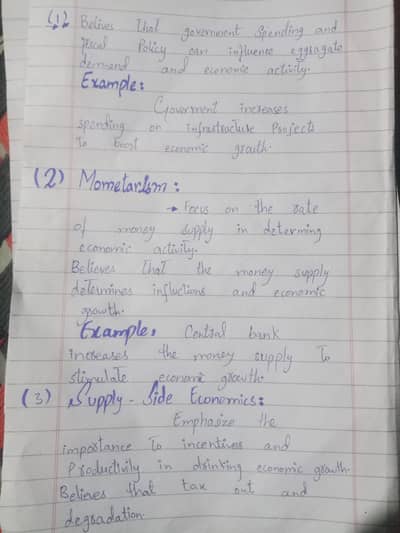 (1) Belives that government spending and
fiscal Policy can influence eggragate
demand and economic activity.
Example:
Goverment increases
spending on infrastructure Projects
To boost economic grouth.
(2) Mometarism:
→ Focus on the rate
of money supply in determing
economic activity.
Believes that the money supply
determines influctions and economic
growth.
Example: Central bank
increases the money supply To
stimulate economic growth.
(3) Supply-Side Economics:
Emphasize the
importance To incentives and
Productivity in drinking economic growth.
Believes that tax out and
degradation.